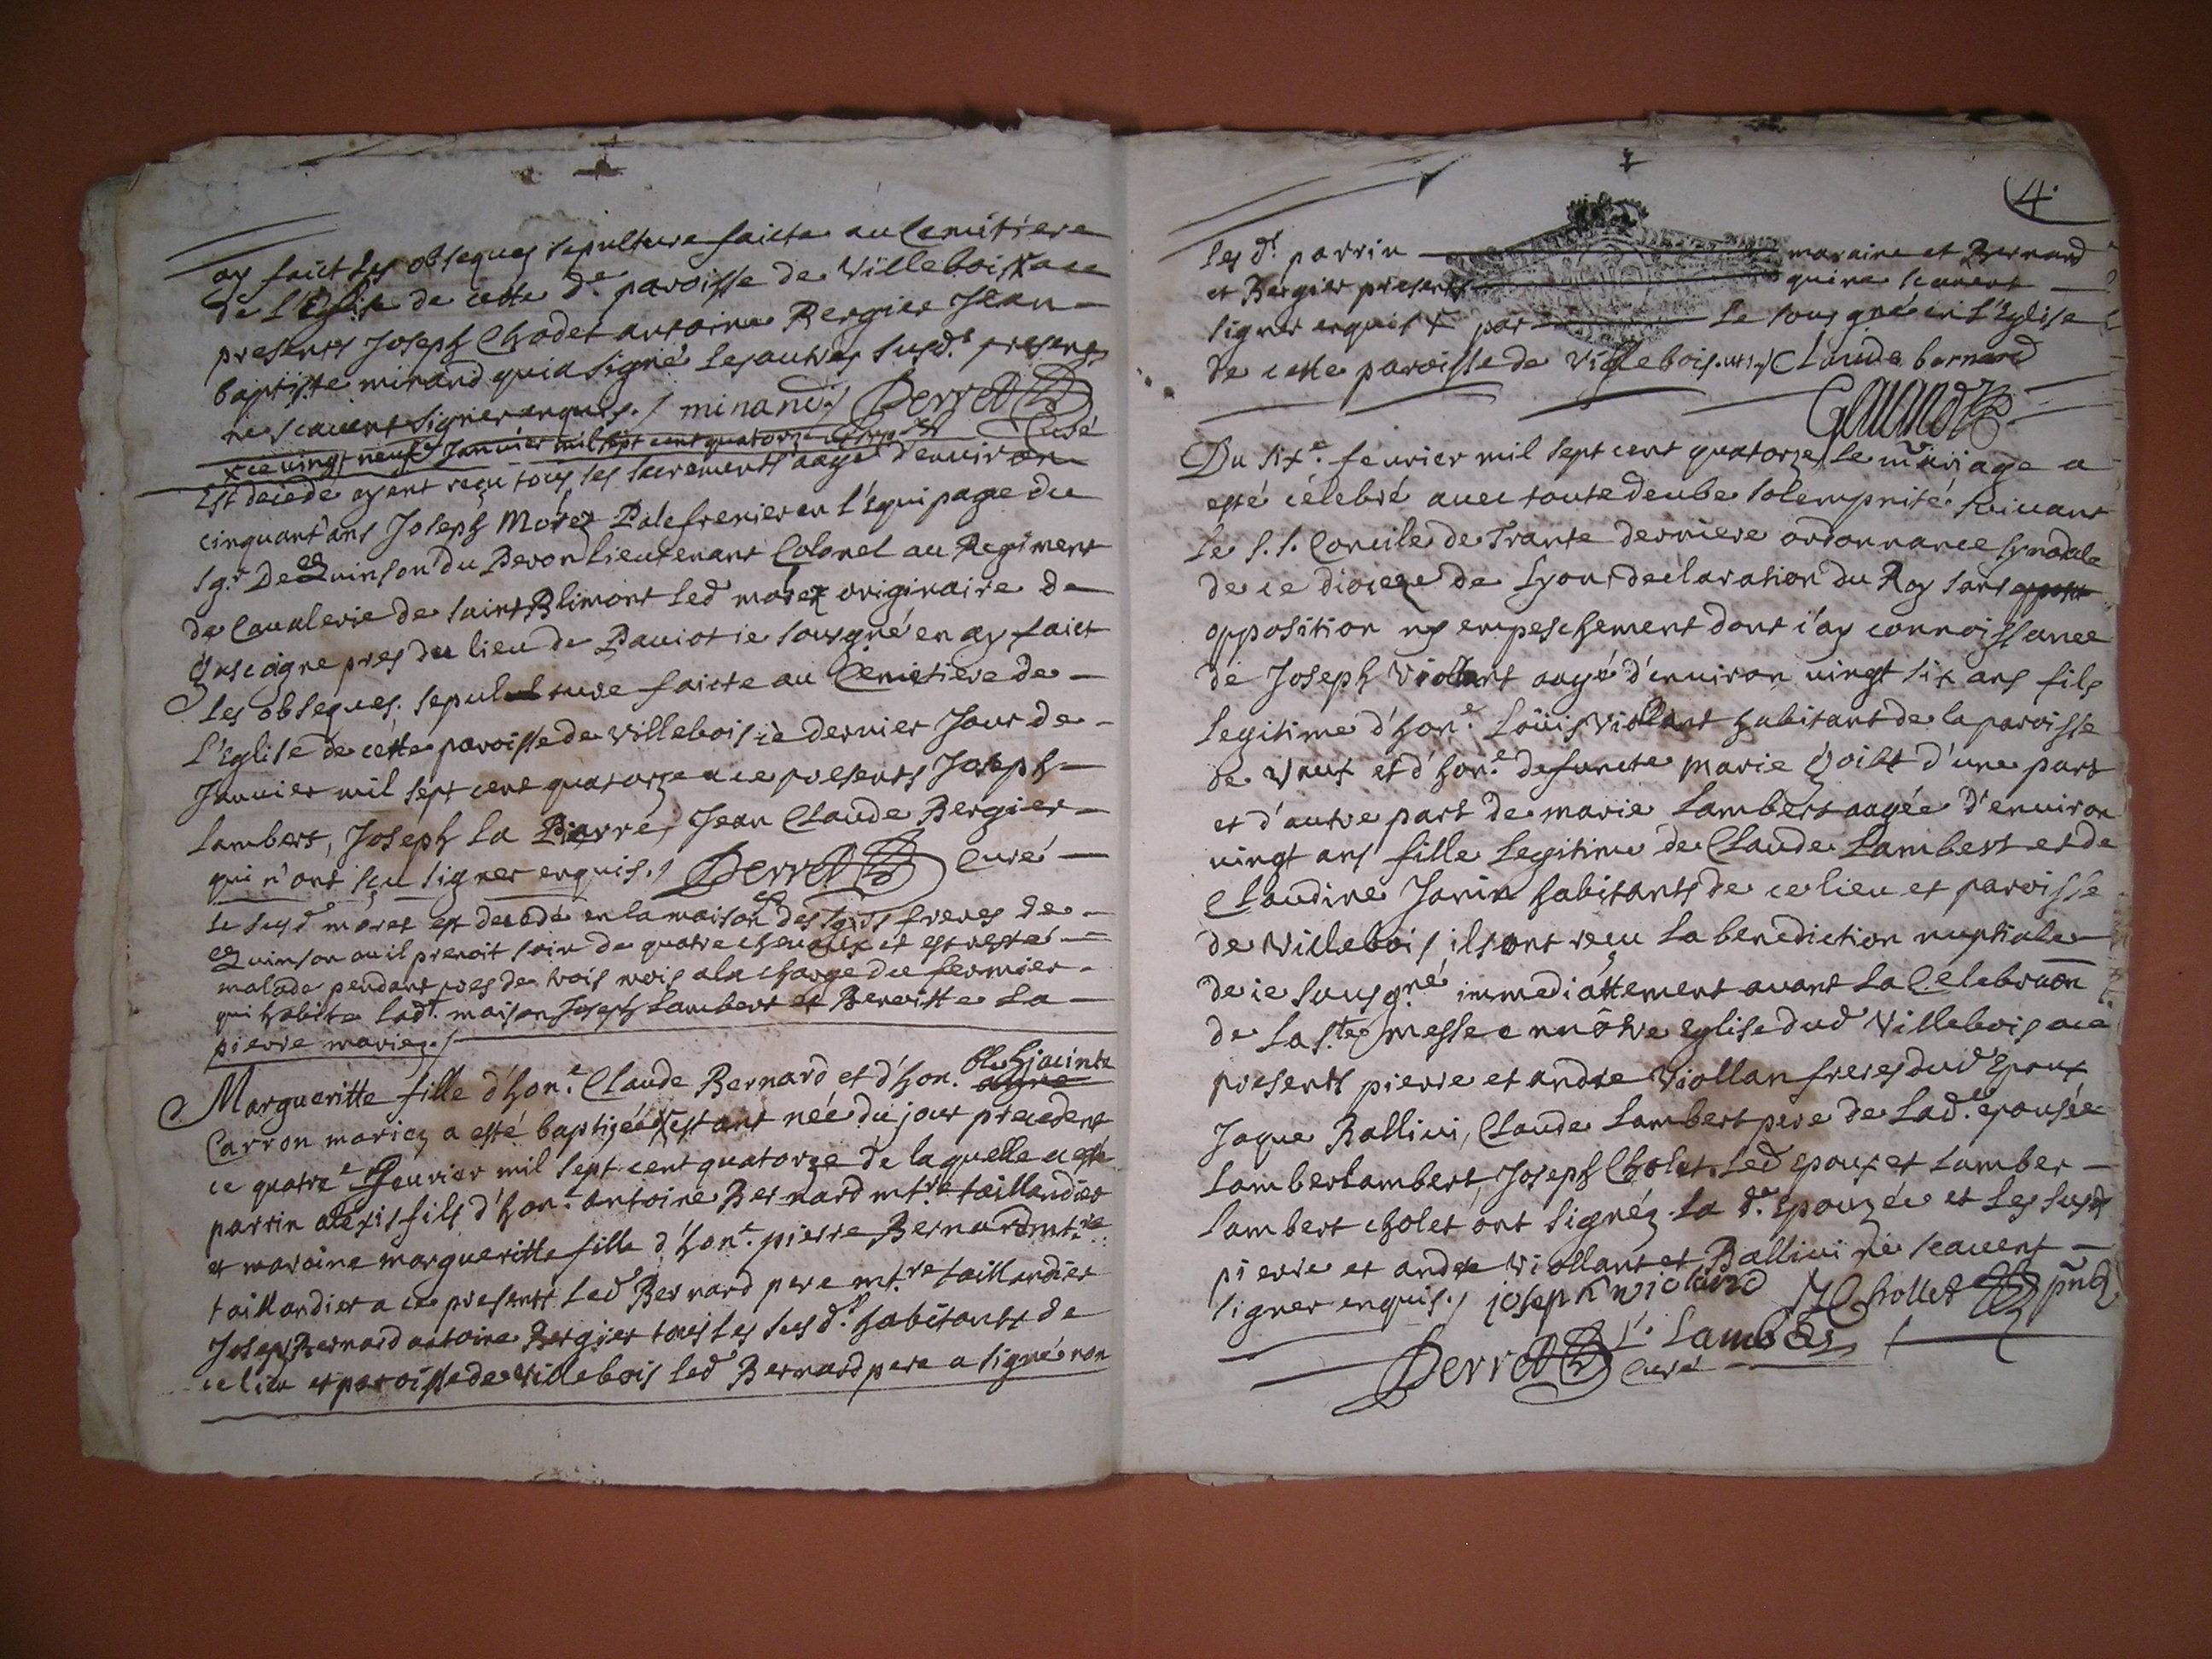 ay faict les obseques sepulture faicte au Cemitiere
de l'Eglise de cette de. paroisse de Villebois + a ce
presents Joseph Chodet antoine Bergier Jean
baptiste minand qui a signé les autres susds. presens
ne scavent signer enquis./ minand./ Perret Curé
+ ce vingt neufe Janvier mil sept cent quatorze
Est decedé ayant reçu tous ses sacrements aagé d'environ
cinquant'ans Joseph Morez Palefrenier en l'Equipage du
sgr. De Quinson du Devon Lieutenant Colonel au Regiment
de Cavalerie de saint Blimont led morez originaire de
Gascoigne pres du lieu de Paviot ie sousgné en ay faict
les obseques. sepulture faicte au Cemetiere de
L'Eglise de cette paroisse de villebois ce dernier Jour de
Janvier mil sept cent quatorze a ce presents Joseph
Lambert, Joseph La Pierre, Jean Claude Bergier
qui n'ont sçu signer enquis./ Perret Curé
Le susd morez est decedé en la maison des sgrs freres de
Quinson ou il prenoit soin de quatre chevaux et est resté
malade pendant pres de trois mois a la charge du fermier
qui habite ladt. maison Joseph Lambert et Benoitte La
pierre mariez./
Margueritte fille d'hone. Claude Bernard et d'hon. hjacinte
Carron mariez a esté baptizée + estant née du jour precedent
ce quatre fevrier mil sept cent quatorze de laquelle a esté
parrin alexis fils d'hone. Antoine Bernard mtre taillandier
et maraine margueritte fille d'hone. pierre Bernard mtre
taillandier a ce presents led Bernard pere mtre taillandier
Joseph Bernard antoine Bergier tous les susds. habitants de
ce lieu et paroisse de villebois led Bernard pere a signé non
4.
les ds. parrin maraine et Bernard
et Bergier presents qui ne scavent
signer enquis + par Le sousgné en L'Eglise
de cette paroisse de Villebois. Claude bernard
Du sixe. fevrier mil sept cent quatorze Le mariage a
esté célebré avec toute deube solempnité suivant
le S. S. Concile de Trante derniere ordonnance synodale
de ce dioceze de Lyon, declaration du Roy sans
opposition ny empeschement dont i'ay connoissance
de Joseph Viollant aagé d'environ vingt six ans fils
Legitime d'hone. Loüis Viollant habitant de la paroisse
de Vaux et d'hone. defuncte Marie d'une part
et d'autre part de marie Lambert aagée d'environ
vingt ans fille Legitime de Claude Lambert et de
Claudine Janin habitants de ce lieu et paroisse
de Villebois, ils ont reçu la benediction nuptiale
de ie sousgné immediattement avant la Celebraon
de la ste messe en nôtre Eglise dud Villebois a ce
presents pierre et andre Viollan freres dud Epoux
Jaque Ballivi, Claude Lambert pere de lade. epousée
Lamberlambert, Joseph Cholet. Led epoux et Lamber
Lambert cholet ont signéz. La de. Epouzée et les susds
pierre et andre Viollant et Ballivi ne scavent
signer enquis./ joseph violand J Chollet pnt
Lambert
Perret Curé